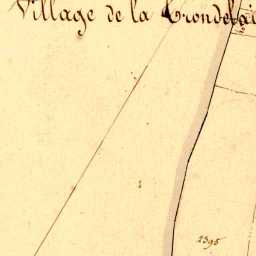 Village de la
2395